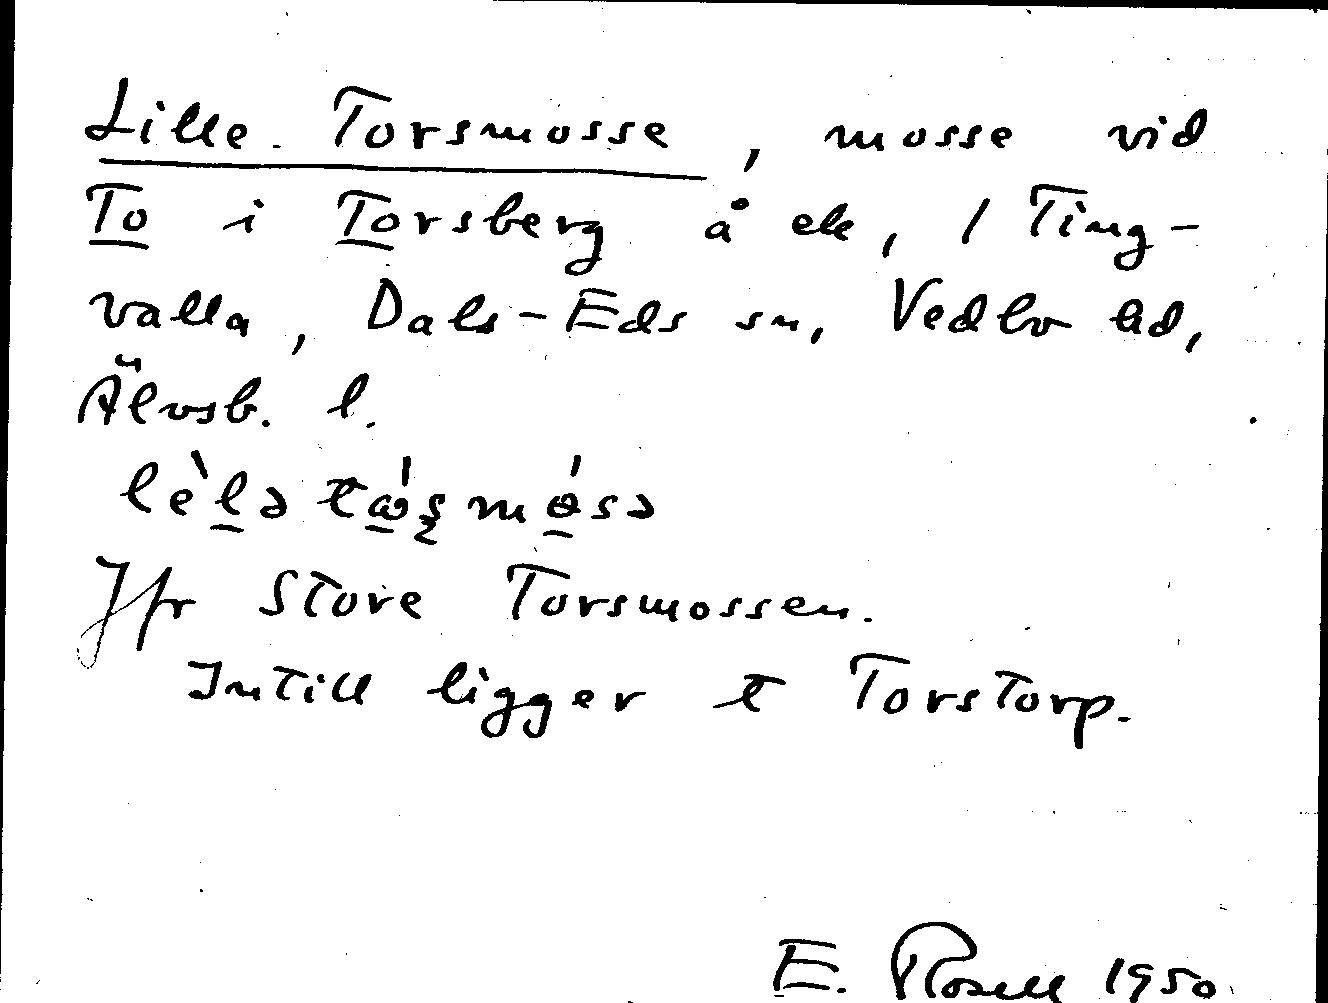 Lille Torsmosse, mosse vid
To i Torsberg å ek, / Ting-
valla, Dals-Eds sn, Vedbo hd,
Älvsb. l.
Jfr Store Torsmossen.
Intill ligger t Torstorp.
E. Rosell 1950